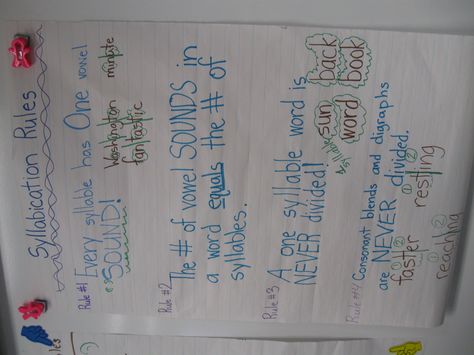 Syllabication Rules
Rule #1 Every syllable has One vowel
SOUND!
Washington
fantastic
minute
Rule #2
The # of vowel SOUNDS in
a word equals the # of
syllables.
Rule #3
A one syllable word is
NEVER divided!
1 syllable
sun
back
word
book
Rule #4 Consonant blends and digraphs
are NEVER divided.
① ②
faster
① ②
resting
① ②
reaching